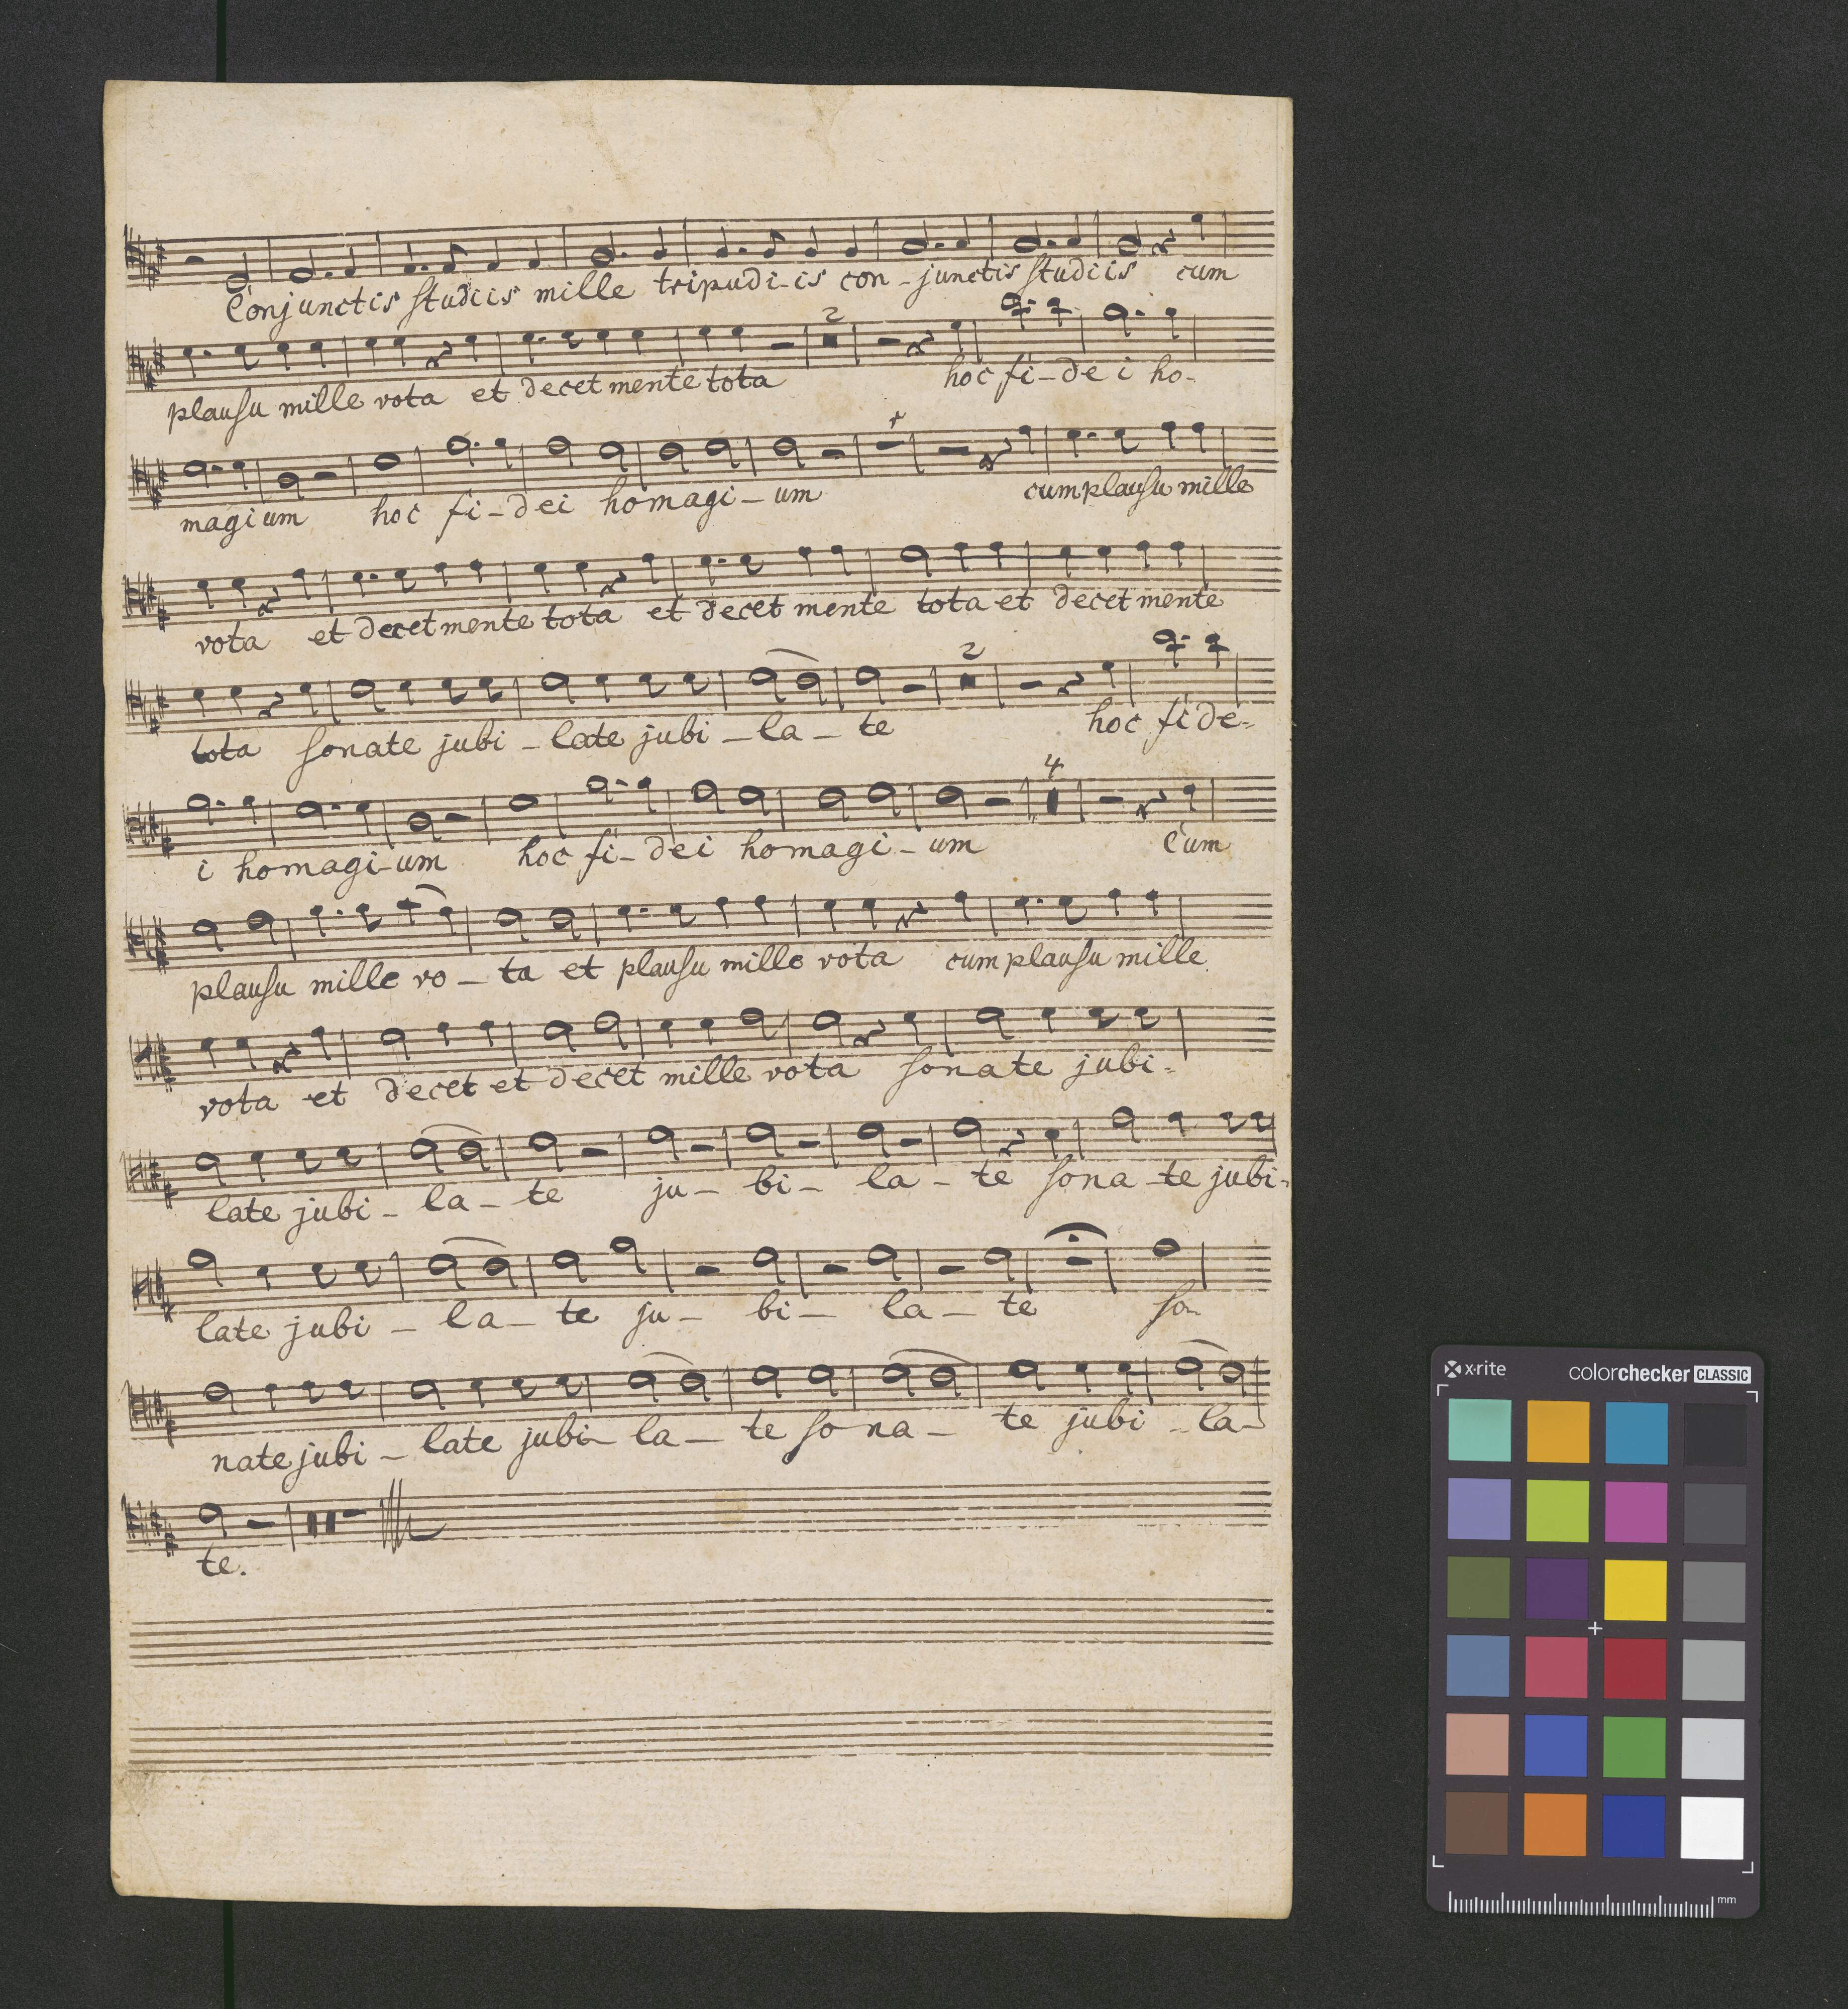 Conjunctis studiis mille tripudi-is con-junctis studiis cum
2
plausu mille vota et decet mente tota hoc fi-de i ho-
magium hoc fi-dei homagi-um cum plausu mille
vota et decet mente tota et decet mente tota et decet mente
2
tota sonate jubi-late jubi-la-te hoc fide-
4
i homagi-um hoc fi-dei homagi-um Cum
plausu mille vo-ta et plausu mille vota cum plausu mille
vota et decet et decet mille vota sonate jubi-
late jubi-la-te ju-bi-la-te sona-te jubi-
late jubi-la-te ju-bi-la-te so-
nate jubi-late jubi-la-te so na-te jubi-la-
te.
x·rite colorchecker CLASSIC
mm